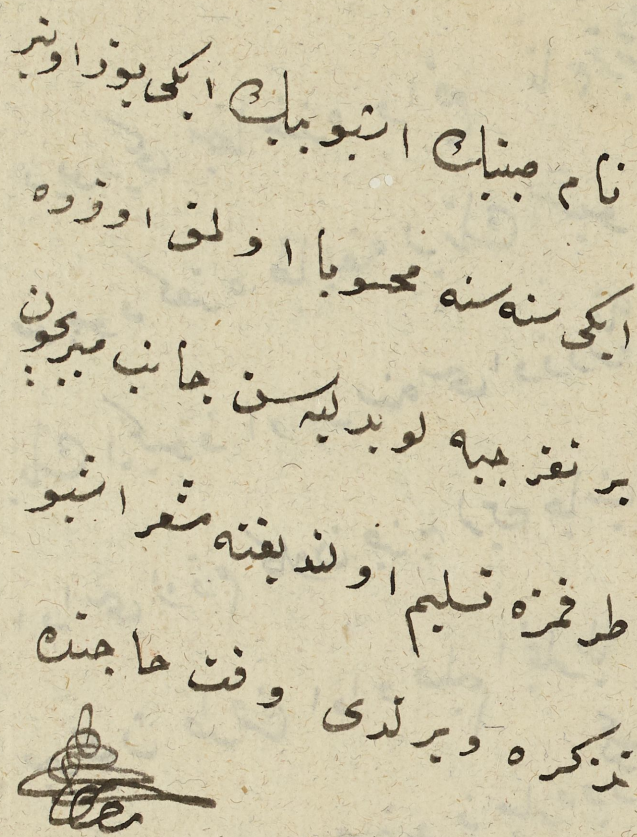 نام جبنك اشبو بيك ايكى يوز اوتيز
ايكى سنه سنه محسوبا اولمق اوزره
بر نفر جبه لو بدليه سن جانب ميريچون
طرفمزه تسليم اولنديغنه مشعر اشبو
تذكره ويرلدى وقت حاجتده